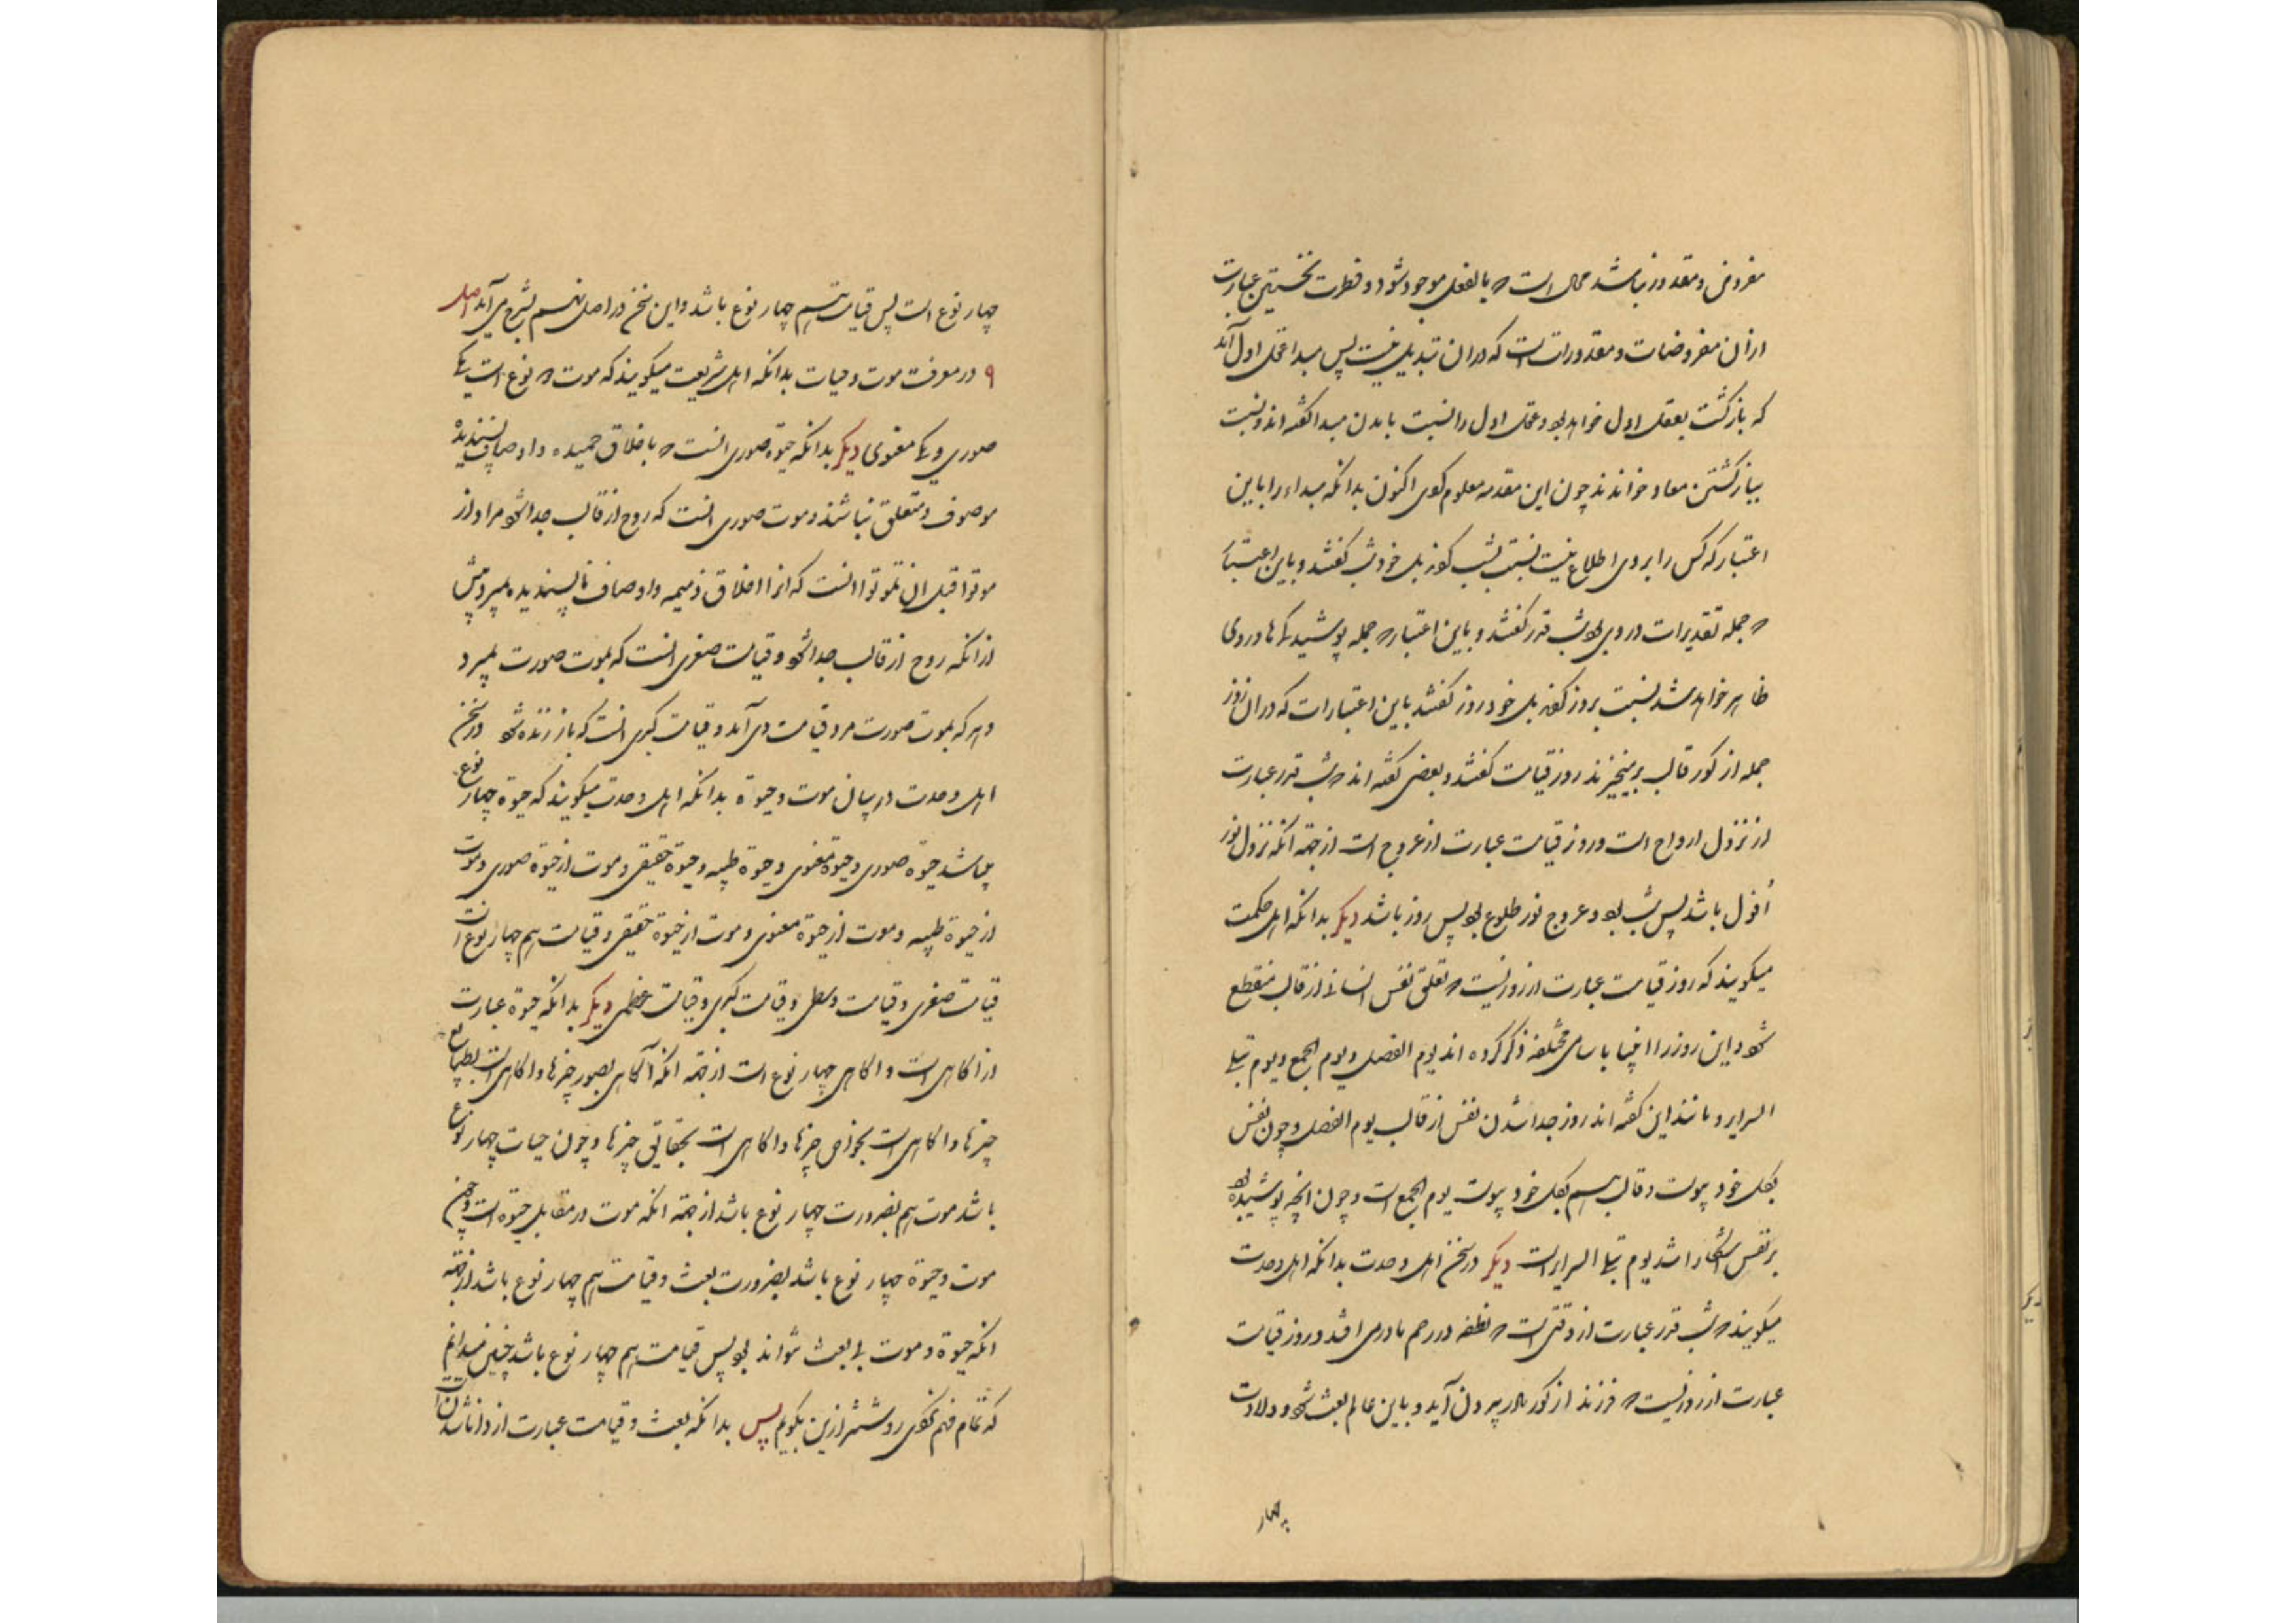 مفروض و مقدور نباشد محال است که بالفعل موجود شود و فطرت نخستین عبارت
از آن مفروضات و مقدورات است که در آن تبدیل نیست پس مبدا عقل اول آمد
که بازگشت بعقل اول خواهد بود و عقل اول را نسبت بامدن مبدا گفته‌اند و نسبت
ببازگشتن معاد خوانند چون این مقدمه معلوم کردی اکنون بدانکه مبداء را باین
اعتبار که کس را بر وی اطلاع نیست نسبت بشب کرده بلکه خود شب گفتند و باین اعتبار
که جمله تقدیرات در وی بود شب قدر گفتند و باین اعتبار که جمله پوشیدگیها در وی
ظاهر خواهد شد نسبت بروز کرده بلکه خود روز گفتند باین اعتبارات که در ان روز
جمله از گور قالب برمیخیزند روز قیامت گفتند و بعضی گفته‌اند که شب قدر عبارت
از نزول ارواح است و روز قیامت عبارت از عروج است از جهة انکه نزول نور
اُفول باشد پس شب بود و عروج نور طلوع بود پس روز باشد دیگر بدانکه اهل حکمت
میگویند که روز قیامت عبارت از روزیست که تعلق نفس انسانی از قالب منقطع
شود و این روز را انبیا باسامی مختلفه ذکر کرده‌اند یوم الفصل و یوم الجمع و یوم تبلی
السرایر و مانند این گفته‌اند روز جدا شدن نفس از قالب یوم الفصل و چون نفس
بکل خود پیوست و قالب هم بکل خود پیوست یوم الجمع است و چون انچه پوشیده بود
بر نفس اشکارا شد یوم تبلی السرایر است دیگر در سخن اهل وحدت بدانکه اهل وحدت
میگویند که شب قدر عبارت از وقتی است که نطفه در رحم مادر می افتد و روز قیامت
عبارت از روزیست که فرزند از گور مادر بیرون آید و باین عالم بعث شود و ولادت
چهار
چهار نوع است پس قیامت هم چهار نوع باشد و این سخن در اصل نهم بشرح می‌آید اصل
۹ در معرفت موت و حیات بدانکه اهل شریعت میگویند که موت دو نوع است یکی
صوری و یکی معنوی دیگر بدانکه حیوة صوری انست که باخلاق حمیده و اوصاف پسندیده
موصوف و متعلق نباشند و موت صوری انست که روح از قالب جدا شود مراد از
موتوا قبل ان تموتوا انست که از اخلاق ذمیمه و اوصاف ناپسندیده بمیرد پیش
از انکه روح از قالب جدا شود و قیامت صغری انست که بموت صورت بمیرد
و هر که بموت صورت مرد قیامت وی آمد و قیامت کبری انست که باز زنده شود در سخن
اهل وحدت در بیان موت و حیوة بدانکه اهل وحدت میگویند که حیوة چهار نوع
میباشد حیوة صوری و حیوة معنوی و حیوة طیبه و حیوة حقیقی و موت از حیوة صوری و موت
از حیوة طیبه و موت از حیوة معنوی و موت از حیوة حقیقی و قیامت هم چهار نوع است
قیامت صغری و قیامت وسطی و قیامت کبری و قیامت عظمی دیگر بدانکه حیوة عبارت
از آگاهی است و آگاهی چهار نوع است از جهة انکه آگاهی بصور چیزها و آگاهی است بطبایع
چیزها و آگاهی است بخواص چیزها و آگاهی است بحقایق چیزها و چون حیات چهار نوع
باشد موت هم بضرورت چهار نوع باشد از جهة انکه موت در مقابل حیوة است و چون
موت و حیوة چهار نوع باشد بضرورت بعث و قیامت هم چهار نوع باشد از جهة
انکه حیوة و موت بی بعث نتواند بود پس قیامت هم چهار نوع باشد چنین میدانم
که تمام فهم نکردی روشنتر ازین بگویم پس بدانکه بعث و قیامت عبارت از دانا شدن است